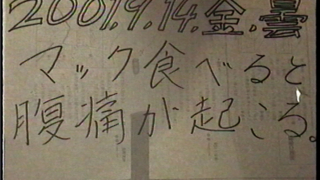 2001.9.14.金.曇
マック食べると
腹痛が起こる。